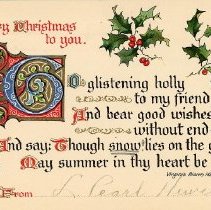 y Christmas
to you.
Go glistening holly
to my friend
And bear good wishes
without end
And say: Though snow lies on the g
May summer in thy heart be
Virginia Bioren H
From L. Pearl